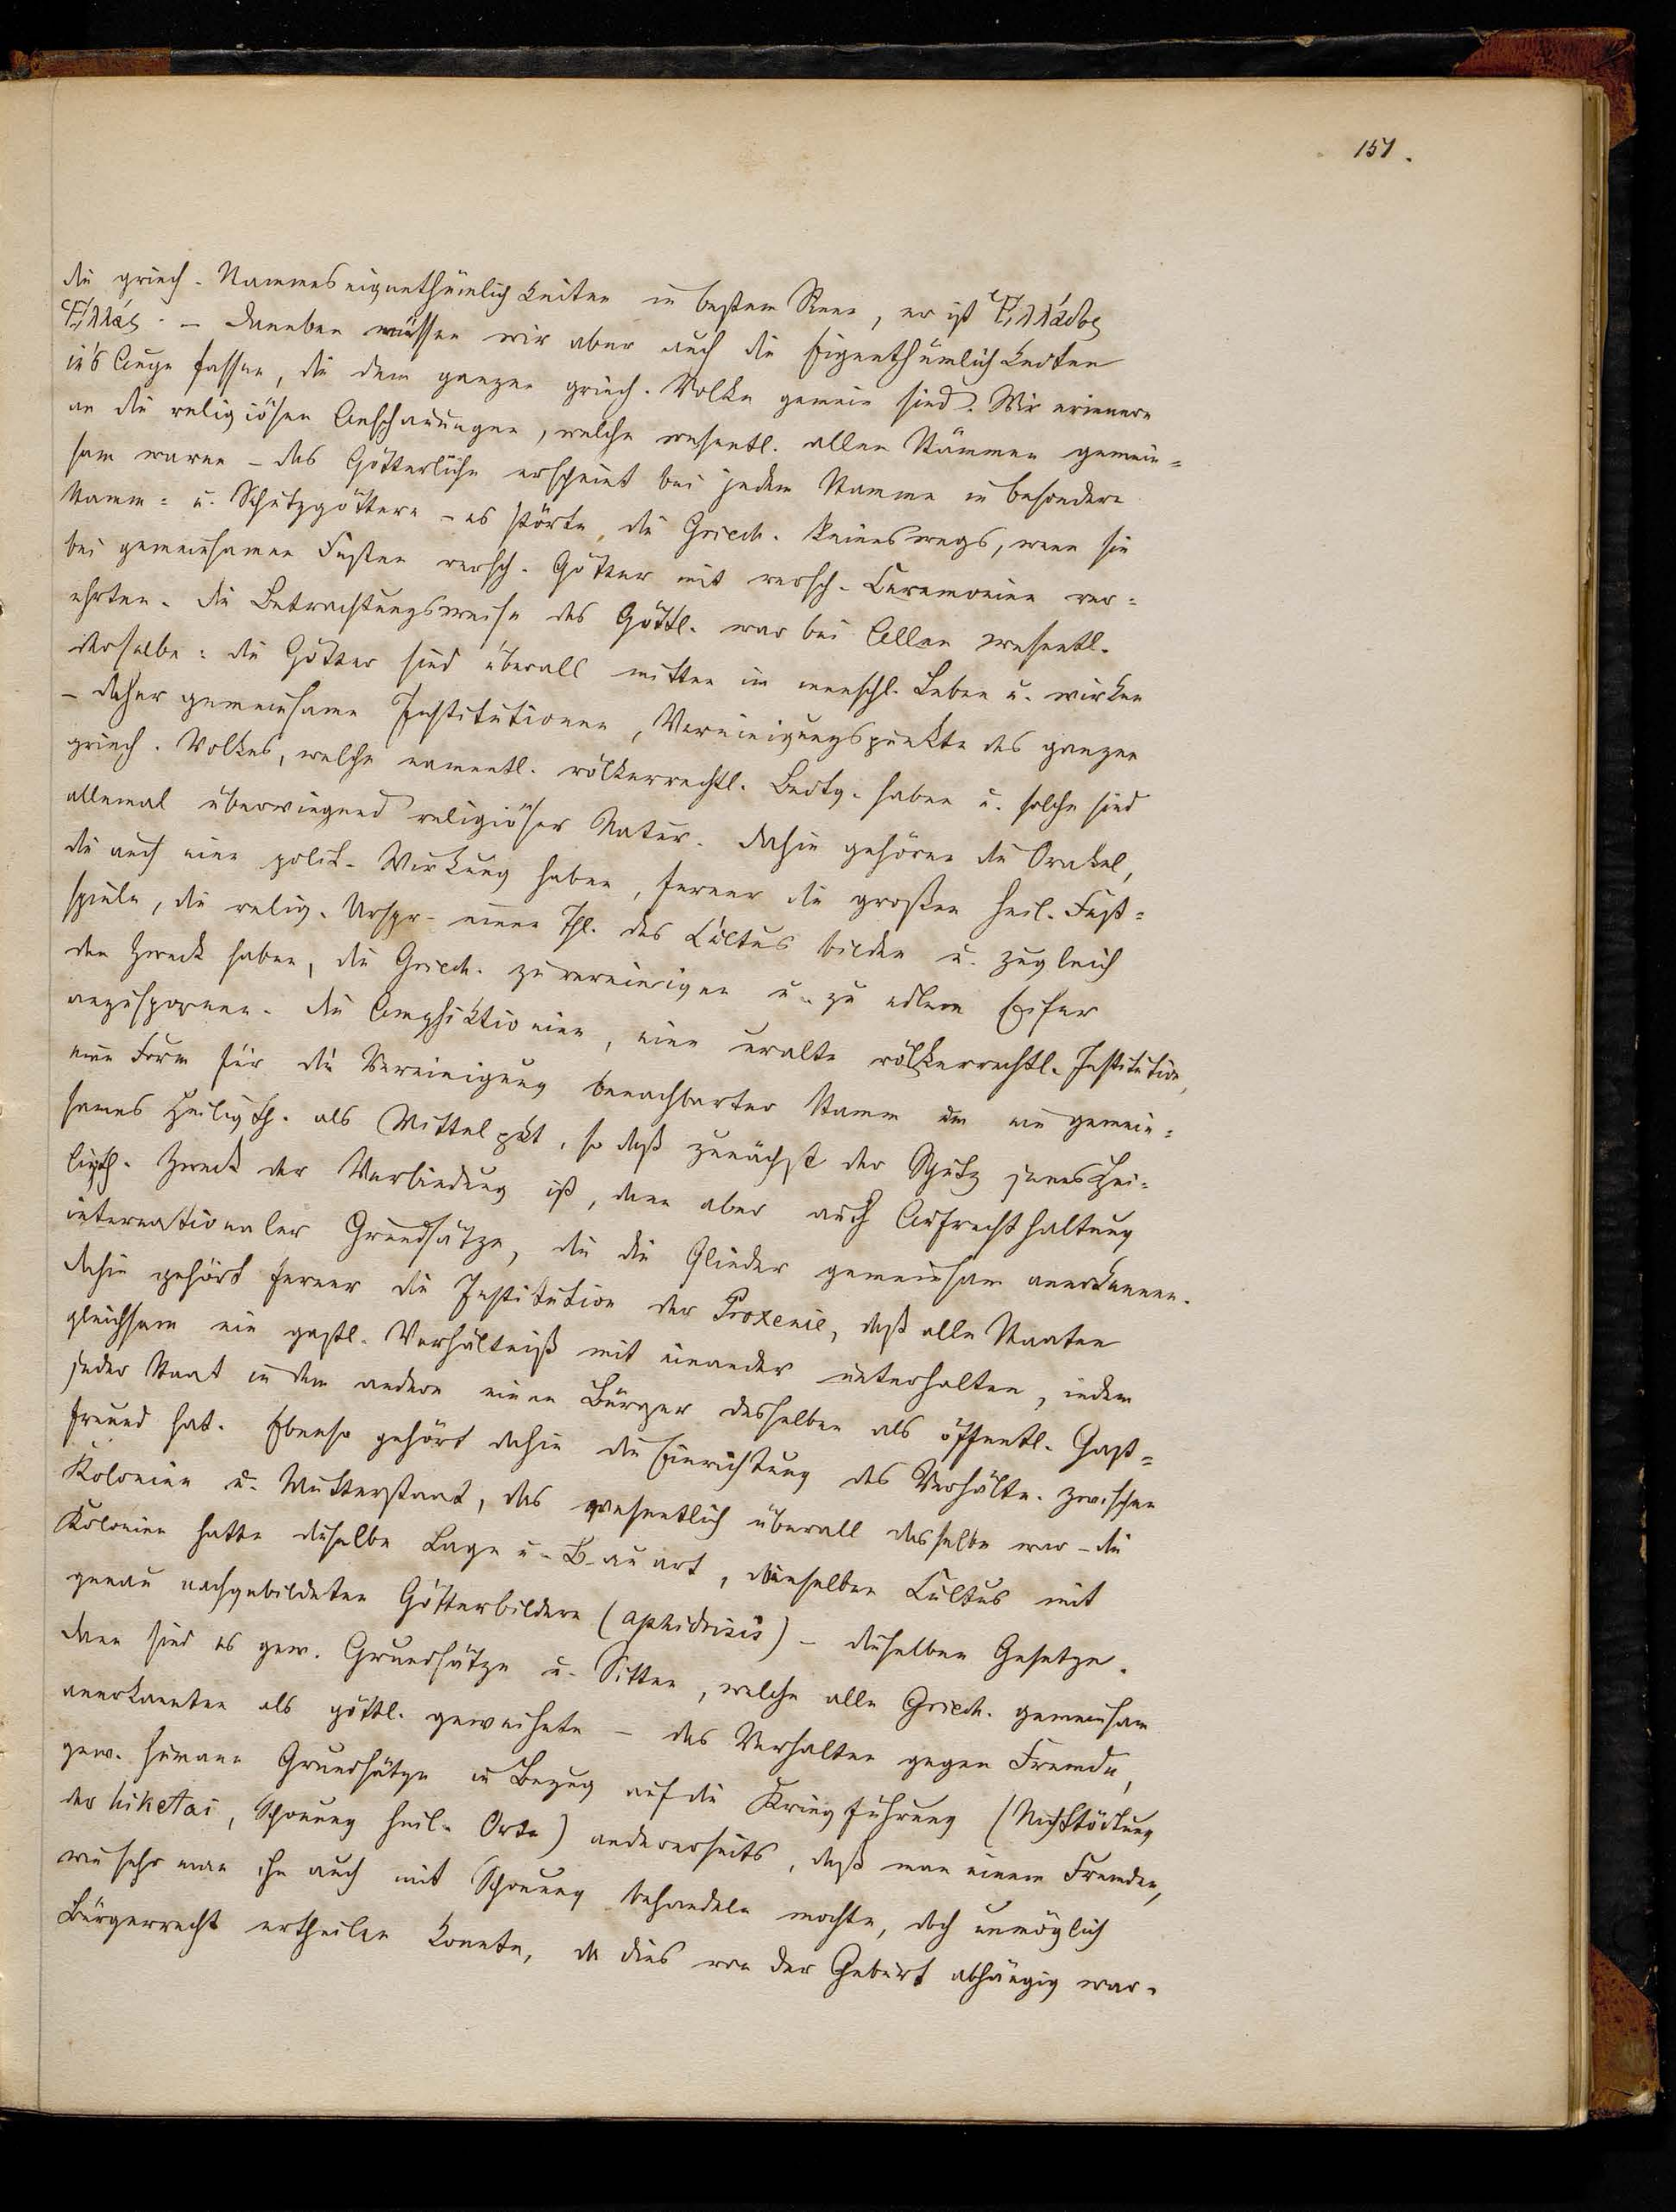 151.
die griech. Stammeseigenthümlichkeiten in bestem Sinne, er ist Ἑλλάδος
Ἑλλάς. – Daneben müssen wir aber auch die Eigenthümlichkeiten
in's Auge fassen, die dem ganzen griech. Volke gemein sind. Wir erinnern
an die religiösen Anschauungen, welche wesentl. allen Stämmen gemein=
sam waren – das Götterliche erscheint bei jedem Stamme in besondern
Stamm= u. Schutzgöttern – es störte die Griech. keineswegs, wenn sie
bei gemeinsamen Festen versch. Götter mit versch. Ceremonien ver=
ehrten. Die Betrachtungsweise des Göttl. war bei Allen wesentl.
dieselbe: die Götter sind überall mitten im menschl. Leben u. wirken
– daher gemeinsame Institutionen, Vereinigungspunkte des ganzen
griech. Volkes, welche namentl. völkerrechtl. Bedtg. haben u. solche sind
allemal überwiegend religiöser Natur. Dahin gehören die Orakel,
die auch eine polit. Wirkung haben, ferner die großen heil. Fest=
spiele, die relig. Urspr. einen Thl. des Cultus bilden u. zugleich
den Zweck haben, die Griech. zu vereinigen u. zu edlem Eifer
anzuspornen. Die Amphiktionien, eine uralte völkerrechtl. Institution,
eine Form für die Vereinigung benachbarter Stämme um ein gemein=
sames Heiligth. als Mittelpkt, so daß zunächst der Schutz jenes Hei=
ligth. Zweck der Verbindung ist, dann aber auch Aufrechthaltung
internationaler Grundsätze, die die Glieder gemeinsam anerkennen.
Dahin gehört ferner die Institution der Proxenie, daß alle Staaten
gleichsam ein gastl. Verhältniß mit einander unterhalten, indem
jeder Staat in dem andern einen Bürger desselben als öffentl. Gast=
freund hat. Ebenso gehört dahin die Einrichtung des Verhältn. zwischen
Kolonien u. Mutterstaat, das wesentlich überall dasselbe war – die
Kolonien hatte dieselbe Lage u. Bauart, dieselben Cultus mit
genau nachgebildeten Götterbildern (aphidrisis) – dieselben Gesetze.
Dann sind es gew. Grundsätze u. Sitten, welche alle Griech. gemeinsam
anerkannten als göttl. geweihete – das Verhalten gegen Fremde,
gew. humane Grundsätze in Bezug auf die Kriegführung (Nichttödtung
der hiketai, Schonung heil. Orte) andererseits, daß man einem Fremden,
wie sehr man ihn auch mit Schonung behandeln mochte, doch unmöglich
Bürgerrecht ertheilen konnte, da dies von der Geburt abhängig war.